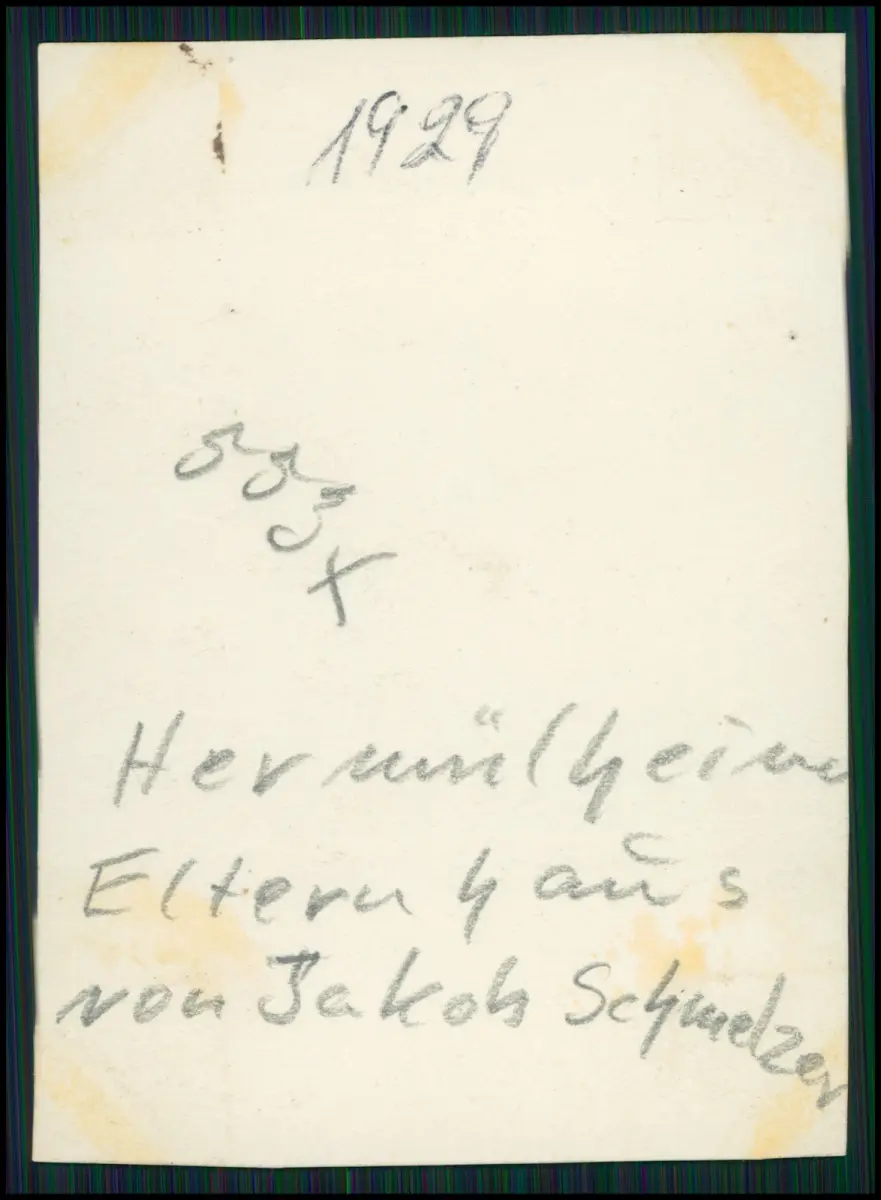 1929
Hermülheim
Elternhaus
von Jakob Schmelzer